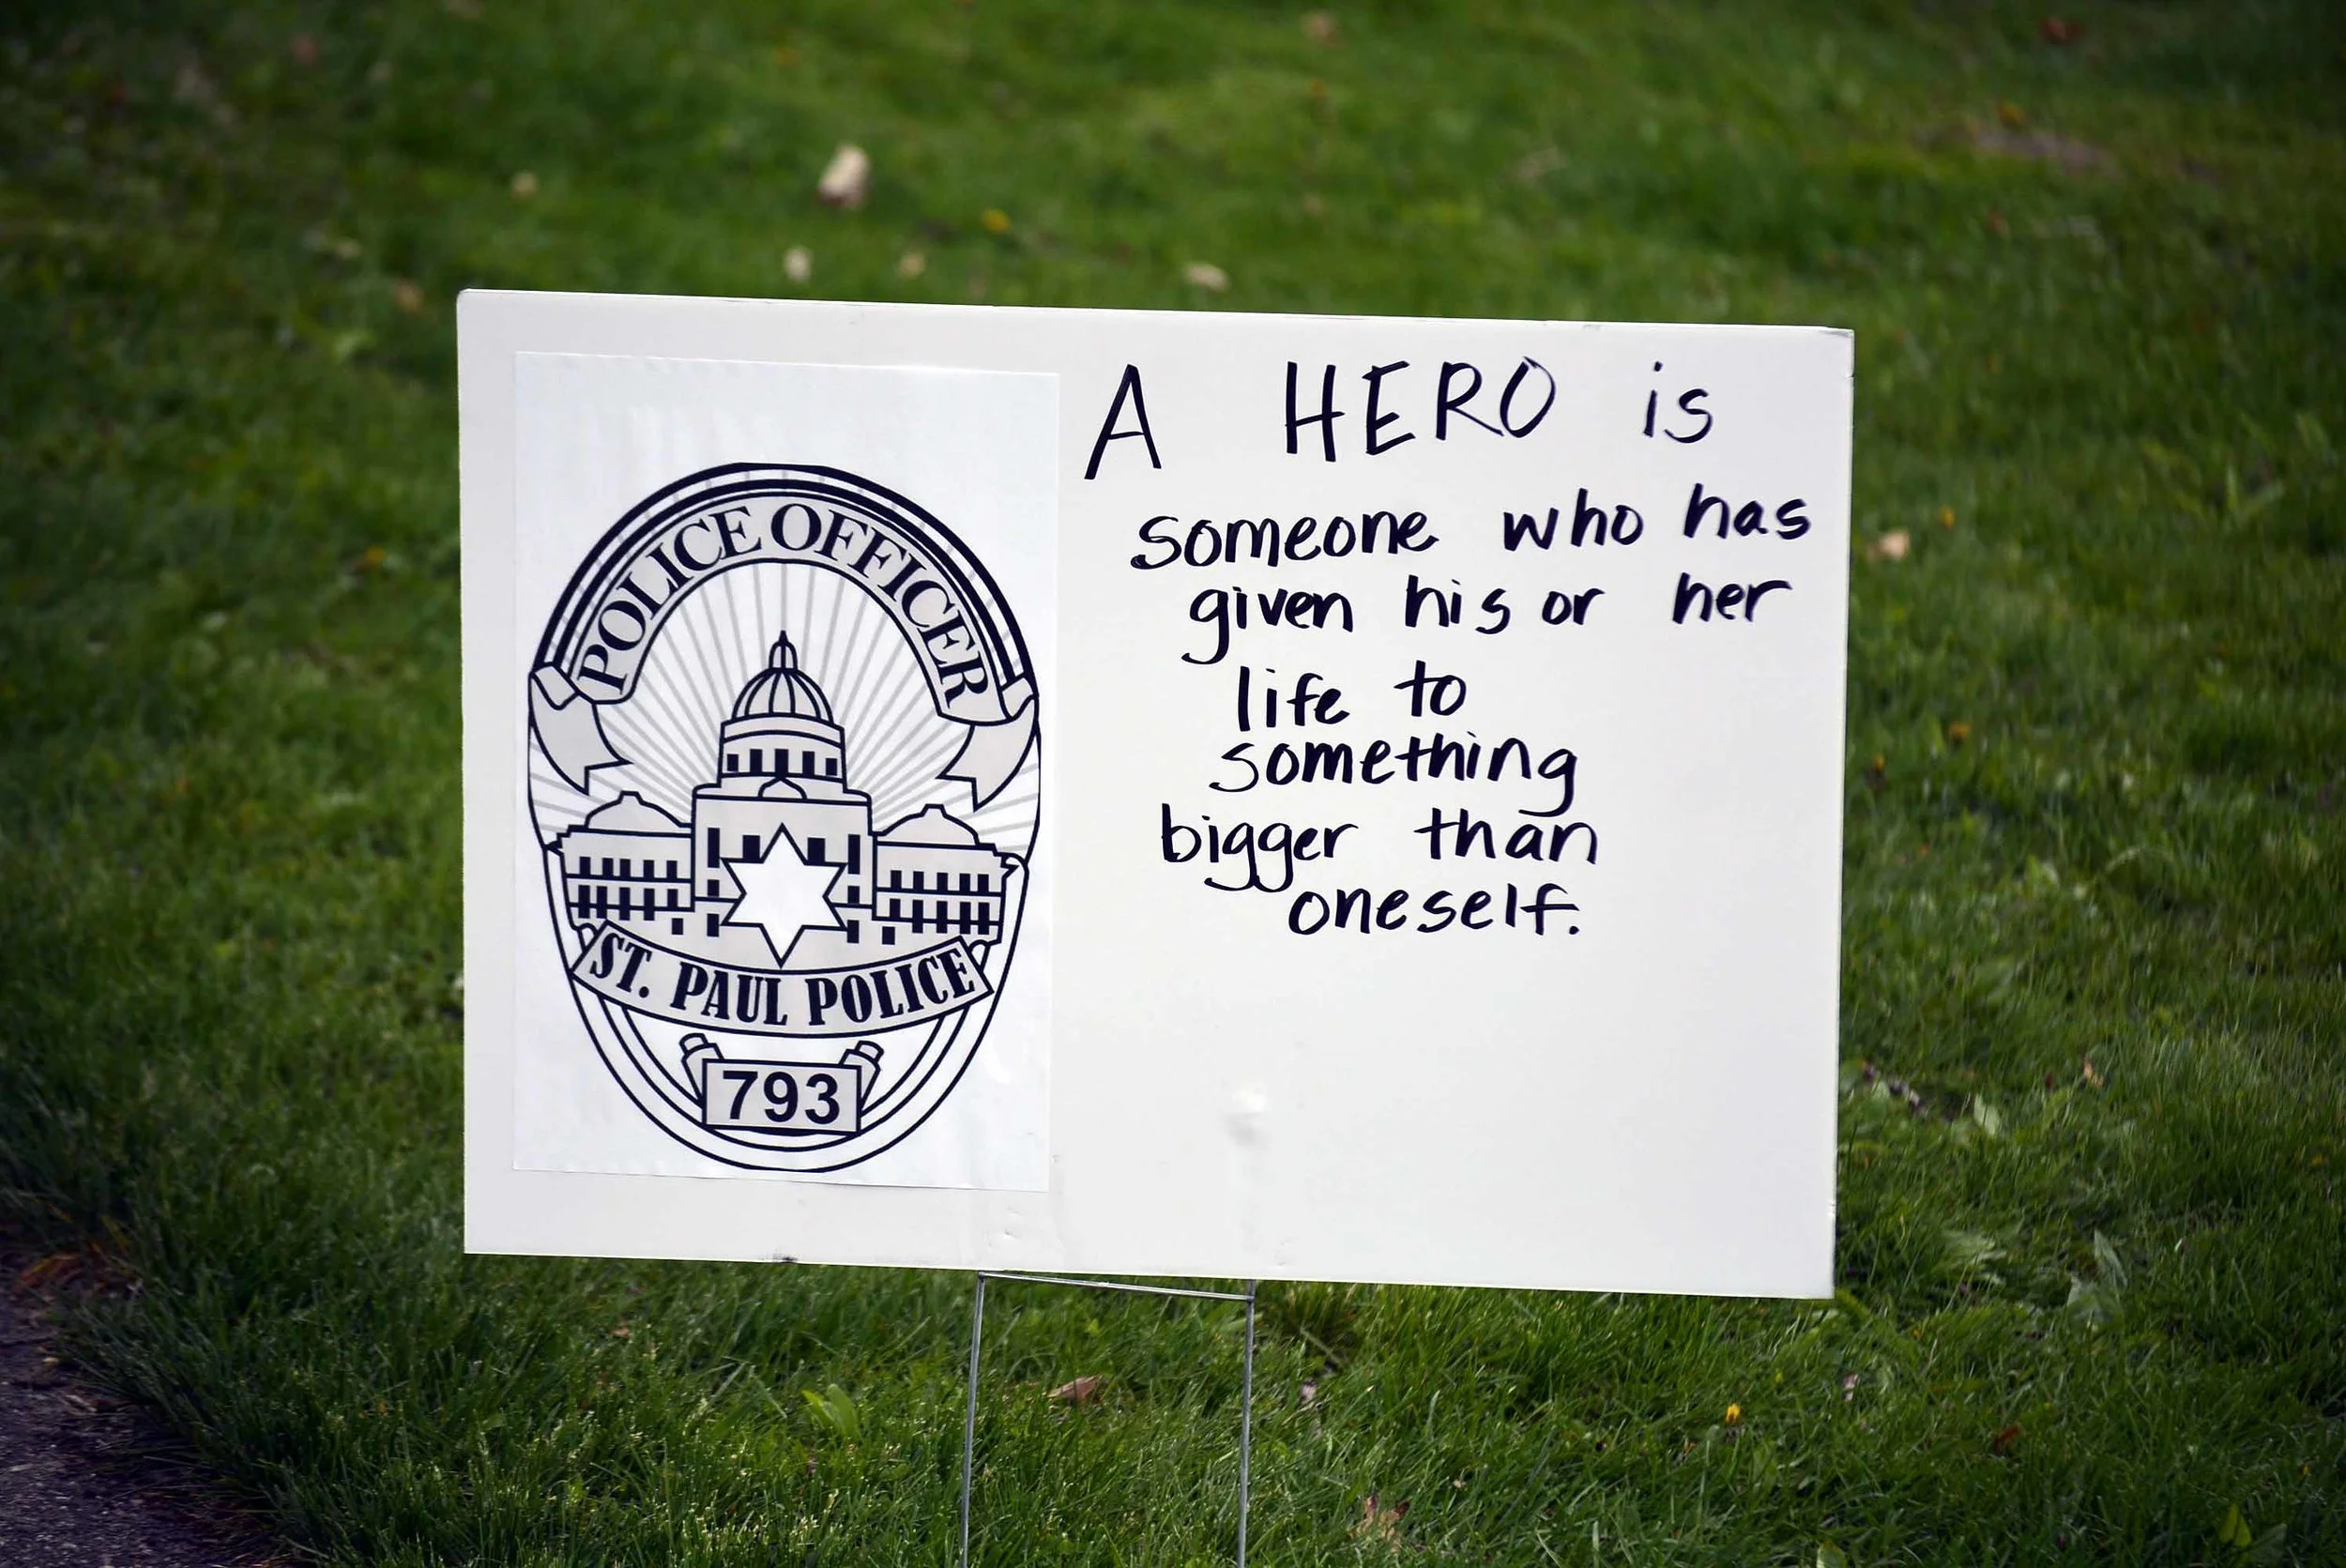 POLICE OFFICER
ST. PAUL POLICE
793
A HERO is
someone who has
given his or her
life to
something
bigger than
oneself.